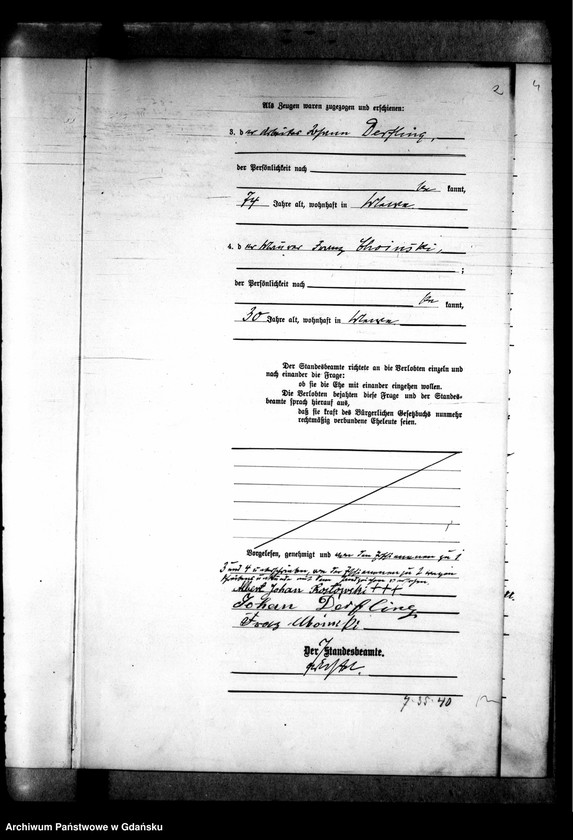 2 4
Als Zeugen waren zugezogen und erschienen:
3. der Arbeiter Johann Derfling,
der Persönlichkeit nach
be kannt,
74 Jahre alt, wohnhaft in
4. der Maurer Franz Choinski,
;
der Persönlichkeit nach
be kannt,
30 Jahre alt, wohnhaft in
Der Standesbeamte richtete an die Verlobten einzeln und
nach einander die Frage:
ob sie die Ehe mit einander eingehen wollen.
Die Verlobten bejahten diese Frage und der Standes-
beamte sprach hierauf aus,
daß sie kraft des Bürgerlichen Gesetzbuchs nunmehr
rechtmäßig verbundene Eheleute seien.
Vorgelesen, genehmigt und von den Erschienenen zu 1
3 und 4 unterschrieben, von der Erschienenen zu 2 wegen
Albert Johan Rostowski +++
Johan Derfling
Franz
Der Standesbeamte.
7. 35. 40
Archiwum Państwowe w Gdańsku